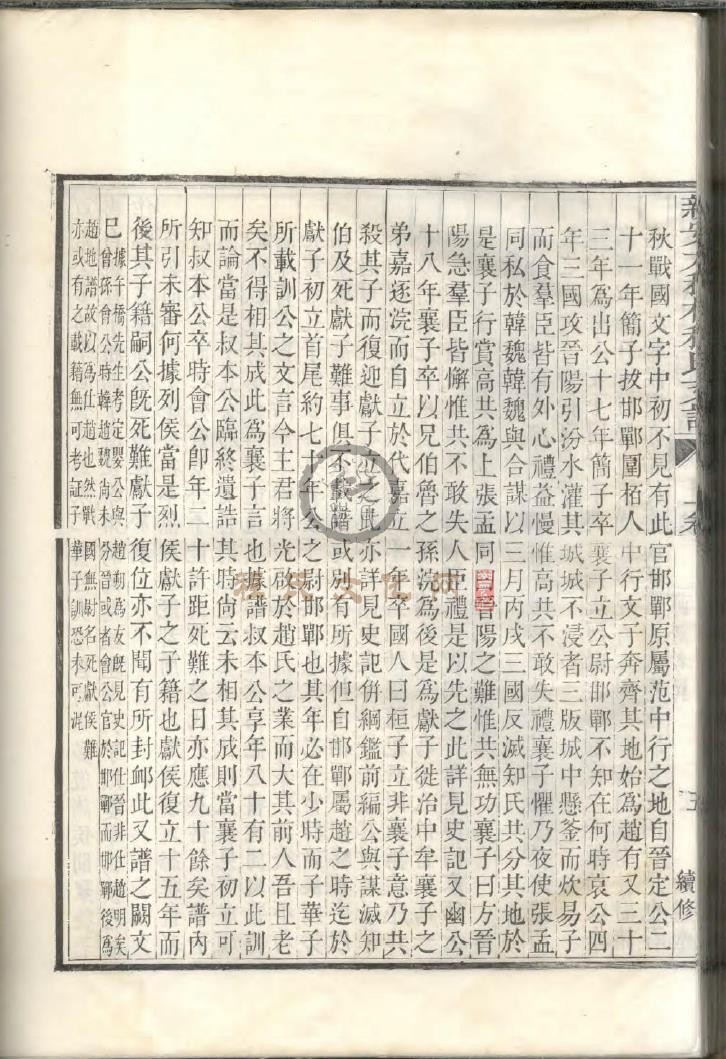 秋戰國文字中初不見有此官邯鄲原屬范中行之地自晉定公二
十一年簡子拔邯鄲圍栢人中行文子奔齊其地始爲趙有又三十
三年爲出公十七年簡子卒襄子立公尉邯鄲不知在何時哀公四
年三國攻晉陽引汾水灌其城城不浸者三版城中懸釜而炊易子
而食羣臣皆有外心禮益慢惟高共不敢失禮襄子懼乃夜使張孟
同私於韓魏韓魏與合謀以三月丙戌三國反滅知氏共分其地於
是襄子行賞高共爲上張孟同曰晉陽之難惟共無功襄子曰方晉
陽急羣臣皆懈惟共不敢失人臣禮是以先之此詳見史記又幽公
十八年襄子卒以兄伯魯之孫浣爲後是爲獻子徙治中牟襄子之
弟嘉逐浣而自立於代嘉立一年卒國人曰桓子立非襄子意乃共
殺其子而復迎獻子立之此亦詳見史記併綱鑑前編公與謀滅知
伯及死獻子難事俱不載譜或别有所據但自邯鄲屬趙之時迄於
獻子初立首尾約七十年公之尉邯鄲也其年必在少時而子華子
所載訓公之文言今主君將光啟於趙氏之業而大其前人吾且老
矣不得相其成此爲襄子言也據譜叔本公享年八十有二以此訓
而論當是叔本公臨終遺誥其時尙云未相其成則當襄子初立可
知叔本公卒時會公卽年二十許距死難之日亦應九十餘矣譜内
所引未審何據列侯當是烈侯獻子之子籍也獻侯復立十五年而
後其子籍嗣公旣死難獻子復位亦不聞有所封䘏此又譜之闕文
巳據午橋先生考定嬰公與趙朔爲友旣見史記仕晉非仕趙明矣
曾孫會公時韓趙魏尙未分晉或者會公官於邯鄲而邯鄲後爲
趙地譜故以爲仕趙也然戰國無尉名死獻侯難
亦或有之載籍無可考証子華子訓恐未可泥
續修
五